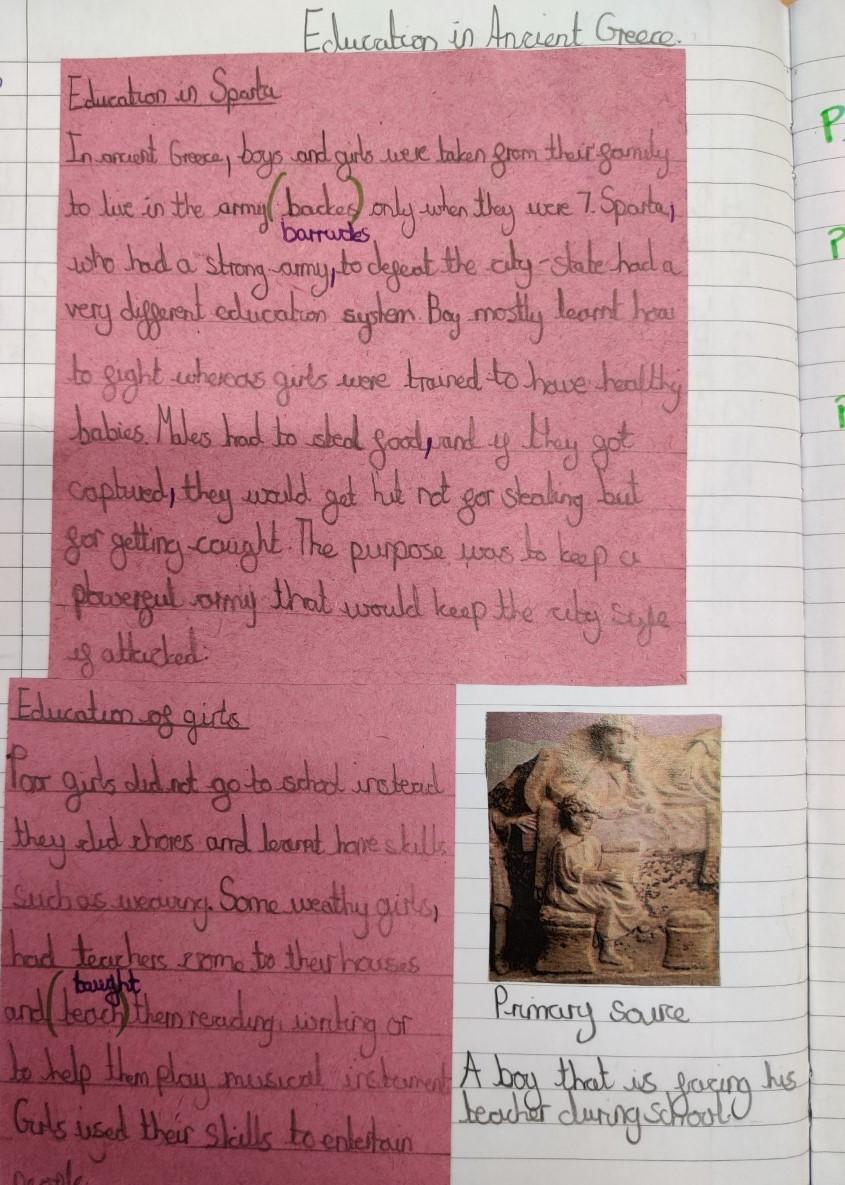 Education in Ancient Greece.
Education in Sparta
In ancient Greece, boys and girls were taken from their family
to live in the army (backes) only when they were 7. Sparta,
barrudes
who had a strong army, to defeat the city-state had a
very different education system. Boy mostly learnt how
to fight whereas girls were trained to have healthy
babies. Males had to steal food, and if they got
captured, they would get hit not for stealing but
for getting caught. The purpose was to keep a
powerful army that would keep the city safe
if attacked.
Education of girls
Poor girls did not go to school instead
they did chores and learnt home skills
such as weaving. Some weathy girls,
had teachers come to their houses
taught
and (teach) them reading, writing or
to help them play musical instrument
Girls used their skills to entertain
people
Primary source
A boy that is facing his
teacher during school.
P
P